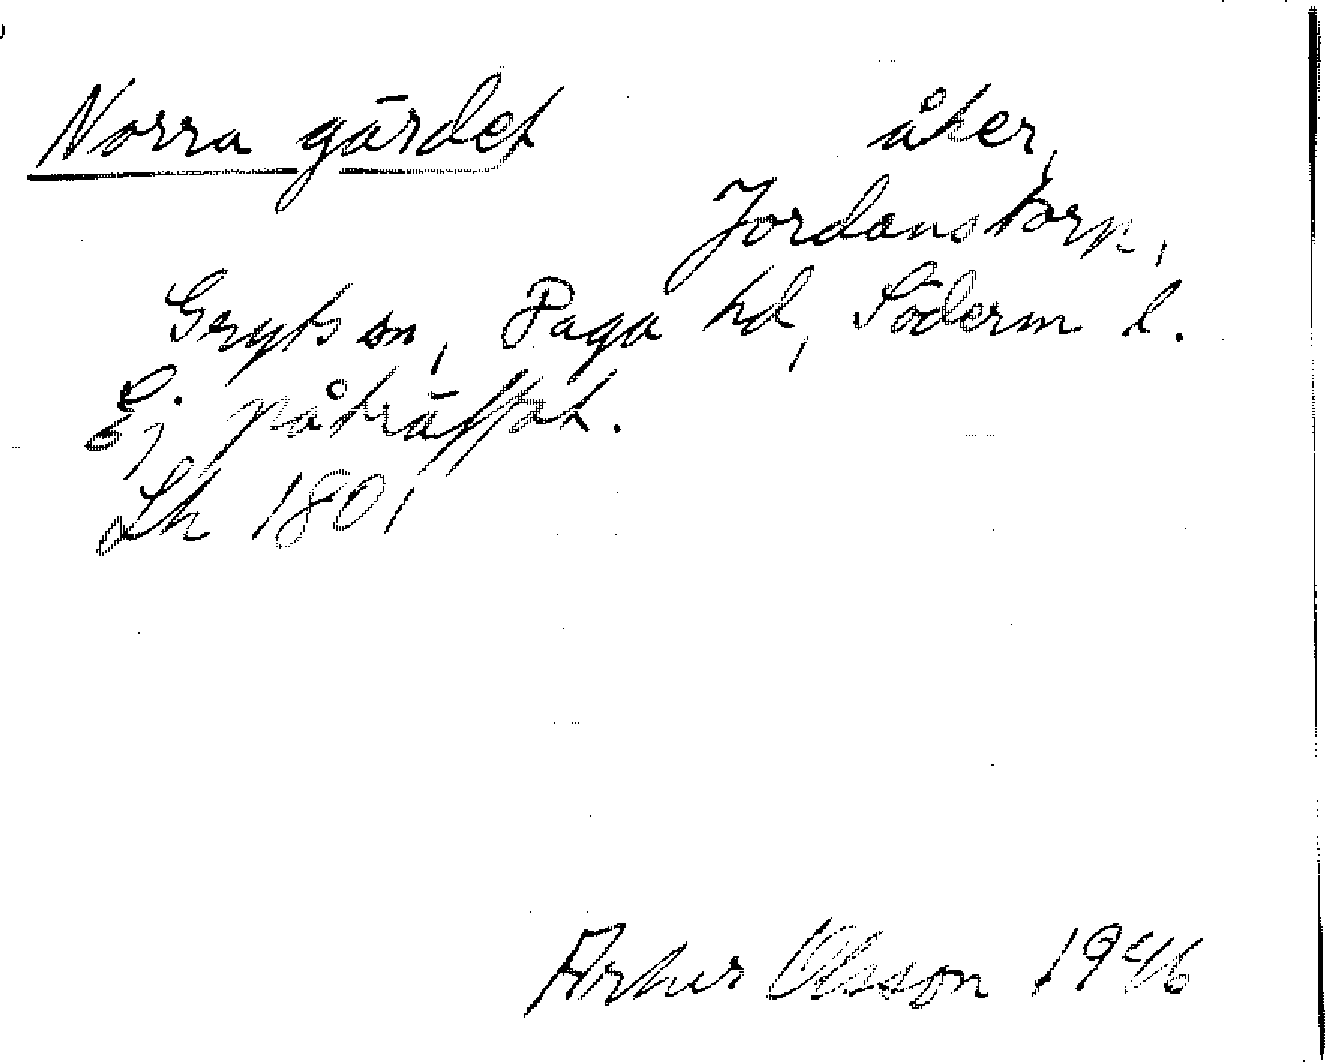 Norra gärdet åker,
Jordanstorp,
Gryts sn, Daga hd, Söderm l.
Ej påträffat.
Lh 1801
Arher Olsson 1946